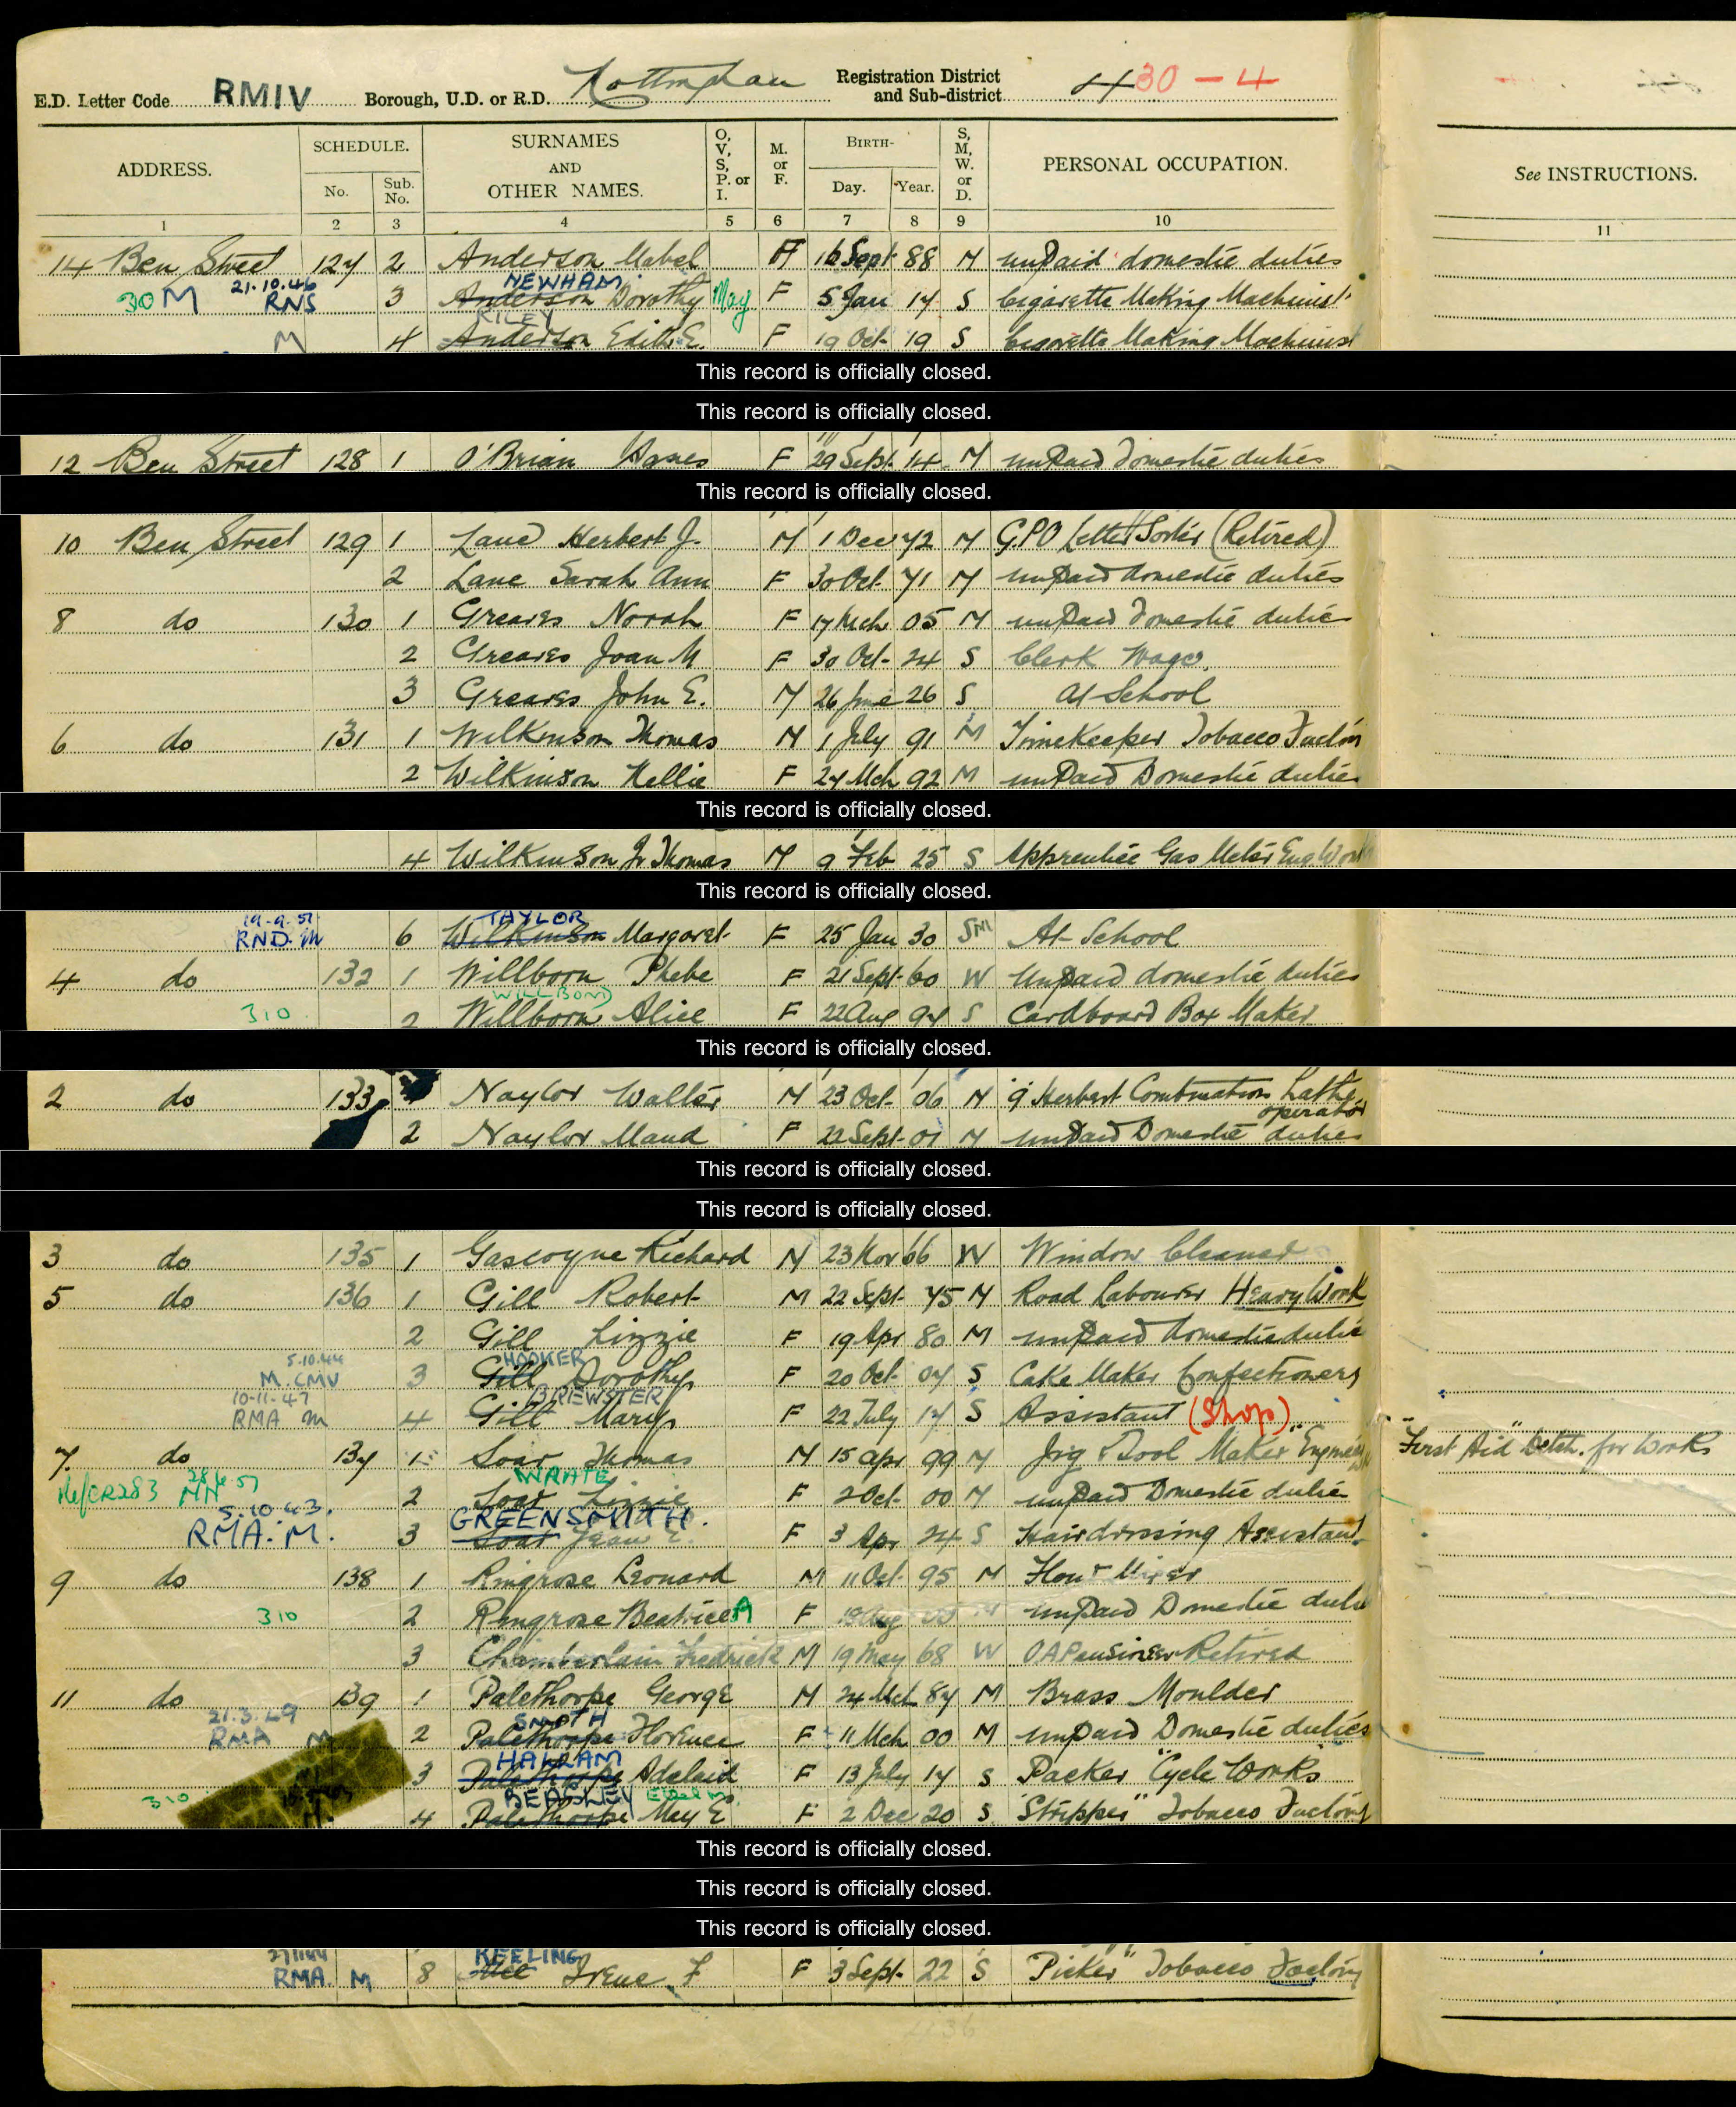 E.D. Letter Code RMIV Borough, U.D. or R.D. Nottingham Registration District and Sub-district 430 - 4
ADDRESS. SCHEDULE. No. Sub. No. SURNAMES AND OTHER NAMES. O, V, S, P. or I. M. or F. BIRTH- Day. Year. S, M, W. or D. PERSONAL OCCUPATION. See INSTRUCTIONS.
1 2 3 4 5 6 7 8 9 10 11
14 Ben Street 127 2 Anderson Mabel F 16 Sept 88 M unpaid domestic duties
30 M 21.10.46 RNS 3 Anderson NEWHAM Dorothy May F 5 Jan 14 S Cigarette Making Machinist
M 4 Anderson RILEY Edith E. F 19 Oct 19 S Cigarette Making Machinist
This record is officially closed.
This record is officially closed.
12 Ben Street 128 1 O'Brian Agnes F 29 Sept 14 M unpaid domestic duties
This record is officially closed.
10 Ben Street 129 1 Lane Herbert J. M 1 Dec 72 M G.P.O Letter Sorter (Retired)
2 Lane Sarah Ann F 30 Oct 71 M unpaid domestic duties
8 do 130 1 Greaves Norah F 17 Mch 05 M unpaid domestic duties
2 Greaves Joan M F 30 Oct 24 S Clerk Wages
3 Greaves John E. M 26 June 26 S At School
6 do 131 1 Wilkinson Thomas M 1 July 91 M Timekeeper Tobacco Factory
2 Wilkinson Nellie F 24 Mch 92 M unpaid Domestic duties
This record is officially closed.
4 Wilkinson Jr Thomas M 9 Feb 25 S Apprentice Gas Meter Eng Work
This record is officially closed.
19-9-51 RND. M 6 Wilkinson TAYLOR Margaret F 25 Jan 30 SM At School
4 do 132 1 Willborn Phebe F 21 Sept 60 W Unpaid domestic duties
310 2 Willborn WILLBOND Alice F 22 Aug 94 S Cardboard Box Maker
This record is officially closed.
2 do 133 Naylor Walter M 23 Oct 06 M 9 Herbert Combination Lathe operator
2 Naylor Maud F 22 Sept 01 M unpaid Domestic duties
This record is officially closed.
This record is officially closed.
3 do 135 1 Gascoyne Richard M 23 Nov 66 W Window Cleaner
5 do 136 1 Gill Robert M 22 Sept 75 M Road Labourer Heavy Work
2 Gill Lizzie F 19 Apr 80 M unpaid domestic duties
5.10.44 M. CMV 3 Gill HOOKER Dorothy F 20 Oct 04 S Cake Maker Confectioners
10-11-47 RMA M 4 Gill BREWSTER Mary F 22 July 14 S Assistant (Shop)
7 do 137 1 Soar Thomas M 15 Apr 99 M Jig & Tool Maker "Engineers "First Aid" Detch. for Works
Ref CR283 MH 28.6.57 2 Soar WRATE Lizzie F 2 Oct 00 M unpaid Domestic duties
5.10.43. RMA. M. 3 Soar GREENSMITH Jean E. F 3 Apr 24 S Hairdressing Assistant
9 do 138 1 Ringrose Leonard M 11 Oct 95 M Flour Mixer
310 2 Ringrose Beatrice A F 18 Aug M unpaid Domestic duties
3 Chamberlain Fredrick M 19 May 68 W OA Pensioner Retired
11 do 139 1 Palethorpe George M 24 Mch 87 M Brass Moulder
21.3.49 RMA M 2 Palethorpe SMITH Florence F 11 Mch 00 M unpaid Domestic duties
3 Palethorpe HALLAM Adelaid F 13 July 17 S Packer "Cycle Works
310 4 Palethorpe BEARDSLEY May E Ethel M. F 2 Dec 20 S "Stripper" Tobacco Factory
This record is officially closed.
This record is officially closed.
This record is officially closed.
RMA M 8 KEELING Irene F F 3 Sept 22 S "Picker" Tobacco Factory